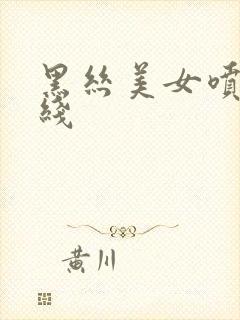 黑丝美女喷
线
黄川